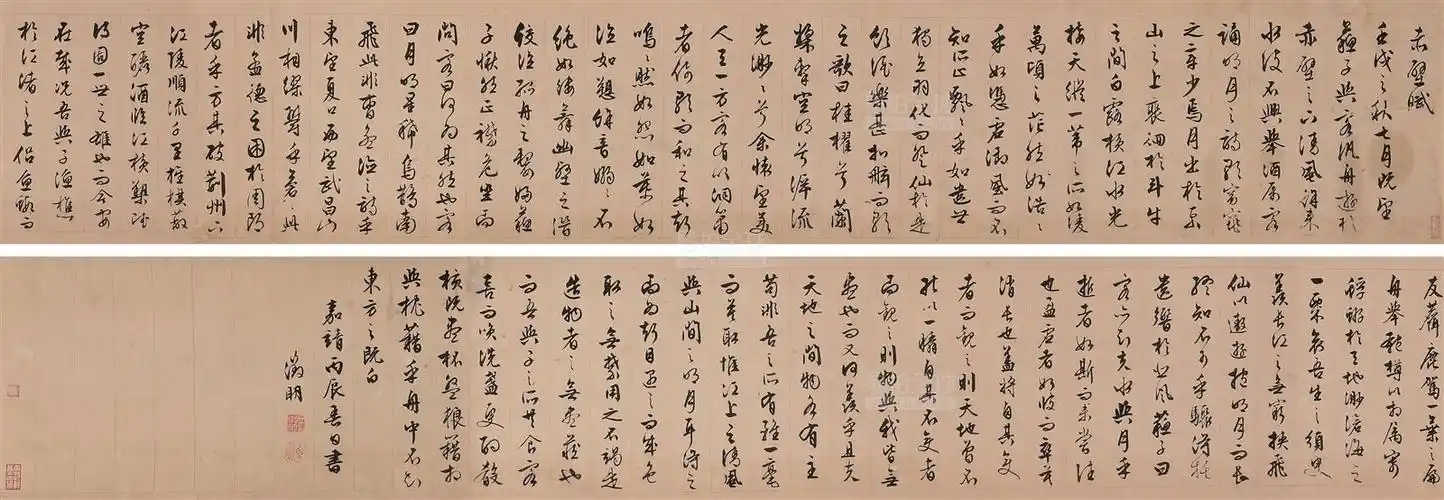 赤壁賦
壬戌之秋七月既望
蘇子與客汎舟遊於
赤壁之下清風徐來
水波不興舉酒屬客
誦明月之詩歌窈窕
之章少焉月出於東
山之上裴徊於斗牛
之間白露橫江水光
接天縱一葦之所如凌
萬頃之茫然浩浩
乎如憑虛御風而不
知所止飄飄乎如遺世
獨立羽化而登仙於是
飲酒樂甚扣舷而歌
之歌曰桂櫂兮蘭
槳擊空明兮泝流
光渺渺兮余懷望美
人兮天一方客有吹洞簫
者倚歌而和之其聲
嗚嗚然如怨如慕如
泣如愬餘音嫋嫋不
絕如縷舞幽壑之潛
蛟泣孤舟之嫠婦蘇
子愀然正襟危坐而
問客曰何為其然也客
曰月明星稀烏鵲南
飛此非曹孟德之詩乎
東望夏口西望武昌山
川相繆鬱乎蒼蒼此
非孟德之困於周郎
者乎方其破荊州下
江陵順流千里旌旗蔽
空釃酒臨江橫槊賦
詩固一世之雄也而今安
在哉況吾與子漁樵
於江渚之上侶魚蝦而
友麋鹿駕一葉之扁
舟舉匏樽以相屬寄
蜉蝣於天地渺滄海之
一粟哀吾生之須臾
羨長江之無窮挾飛
仙以遨遊抱明月而長
終知不可乎驟得托
遺響於悲風蘇子曰
客亦知夫水與月乎
逝者如斯而未嘗往
也盈虛者如彼而卒莫
消長也蓋將自其變
者而觀之則天地曾不
能以一瞬自其不變者
而觀之則物與我皆無
盡也而又何羨乎且夫
天地之間物各有主
苟非吾之所有雖一毫
而莫取惟江上之清風
與山間之明月耳得之
而為聲目遇之而成色
取之無禁用之不竭是
造物者之無盡藏也
而吾與子之所共食客
喜而笑洗盞更酌殽
核既盡杯盤狼藉相
與枕藉乎舟中不知
東方之既白
嘉靖丙辰春日書
徵明